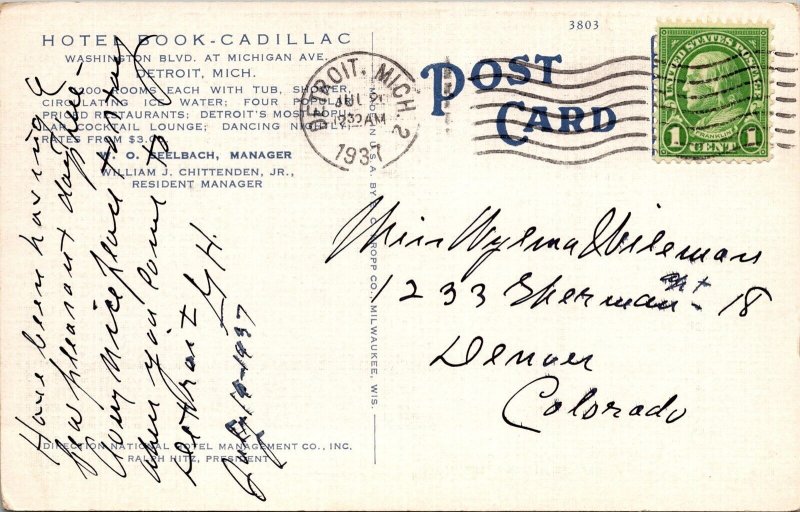 3803
HOTEL BOOK-CADILLAC
WASHINGTON BLVD. AT MICHIGAN AVE.
DETROIT, MICH.
1200 ROOMS EACH WITH TUB, SHOWER,
CIRCULATING ICE WATER; FOUR POPULAR
PRICED RESTAURANTS; DETROIT'S MOST POPU-
LAR COCKTAIL LOUNGE; DANCING NIGHTLY
RATES FROM $3.00
W. O. SEELBACH, MANAGER
WILLIAM J. CHITTENDEN, JR.,
RESIDENT MANAGER
DIRECTION NATIONAL HOTEL MANAGEMENT CO., INC.
RALPH HITZ, PRESIDENT
Have been having a
few pleasant days here-
Very nice place to stay
when you come to
Detroit G. H.
July 10-1937
MADE IN U.S.A. BY E. C. KROPP CO., MILWAUKEE, WIS.
POST
CARD
DETROIT, MICH. 2
JUL
AM
1937
UNITED STATES POSTAGE
FRANKLIN
1 CENT 1
Miss Wylma Wileman
1233 Sherman Apt - 18
Denver
Colorado